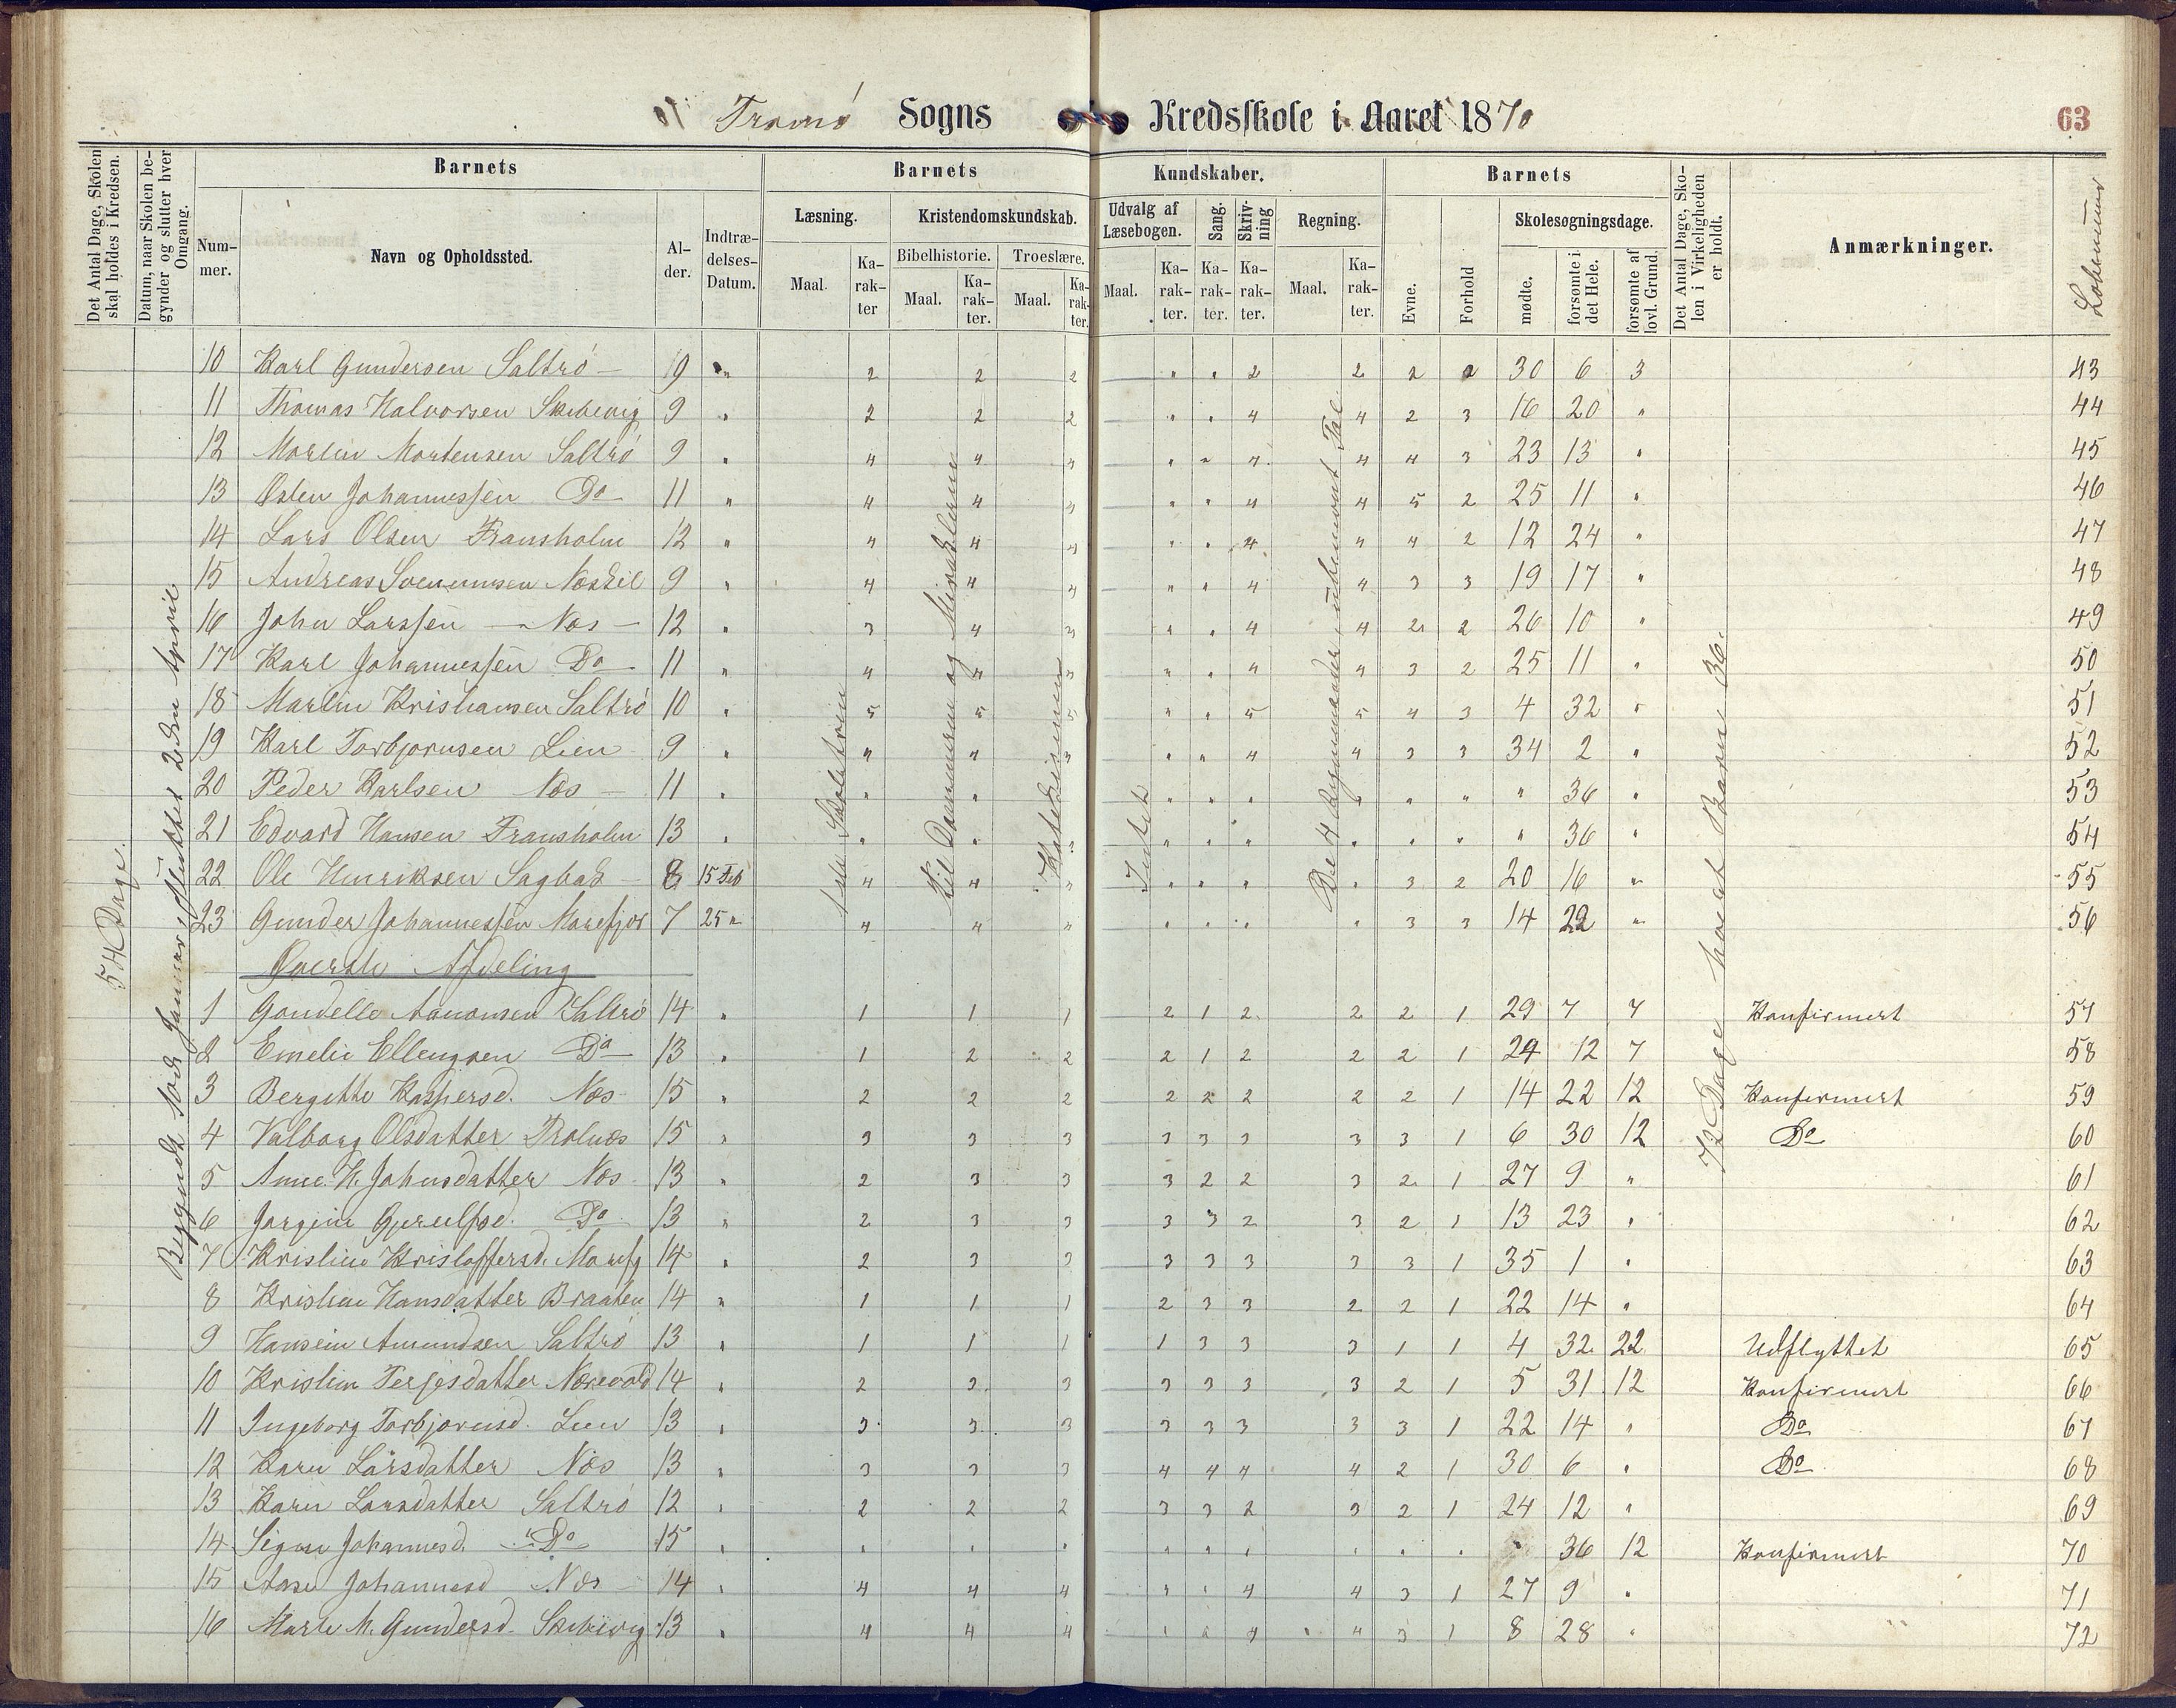 Tromø Sogns Kredsskole i Aaret 1870 63
Det Antal Dage, Skolen skal holdes i Kredsen.
Datum, naar Skolen begynder og slutter hver Omgang.
Barnets
Barnets Kundskaber.
Barnets
Det Antal Dage, Skolen i Virkeligheden er holdt.
Anmærkninger.
Løbenumer
Nummer. Navn og Opholdssted. Alder. Indtrædelses-Datum.
Læsning. Kristendomskundskab. Udvalg af Læsebogen. Sang. Skrivning Regning. Evne. Forhold Skolesøgningsdage.
Bibelhistorie. Troeslære.
Maal. Karakter Maal. Karakter. Maal. Karakter. Maal. Karakter. Karakter. Karakter. Maal. Karakter. mødte. forsømte i det Hele. forsømte af lovl. Grund.
54 Dage.
Begyndt 10de Januar sluttet 2den April
72 Dage hvert Barn 36.
Katekismen
Intet
10 Karl Gundersen Saltrö 9 " 2 2 2 " " 2 2 2 2 30 6 3 43
11 Thomas Halvorsen Skibevig 9 " 2 2 2 " " 4 4 2 3 16 20 " 44
12 Morten Mortensen Saltrö 9 " 4 4 4 " " 4 4 4 3 23 13 " 45
13 Osten Johannessen Do 11 " 4 4 4 " " 4 4 5 2 25 11 " 46
14 Lars Olsen Fransholm 12 " 4 4 4 " " 4 4 4 2 12 24 " 47
15 Andreas Næskil 9 " 4 4 4 " " 4 4 3 3 19 17 " 48
16 John Larssen Næs 12 " 3 4 3 " " 4 4 2 2 26 10 " 49
17 Karl Johannessen Do 11 " 4 4 4 " " 4 4 3 2 25 11 " 50
18 Martin Kristiansen Saltrö 10 " 5 5 5 " " 5 5 4 3 4 32 " 51
19 Karl Torbjornsen Lien 9 " 4 4 4 " " 4 4 3 3 34 2 " 52
20 Peder Karlsen Næs 11 " " " " " " " " " " " 36 " 53
21 Edvard Hansen Fransholm 13 " " " " " " " " " " " 36 " 54
22 Ole Henriksen Sagbak 8 15 Feb 4 4 " " " " " 3 2 20 16 " 55
23 Gunder Johannessen Morefjor 7 25 " 4 4 " " " " " 3 3 14 22 " 56
Överste Afdeling
1 Gondelle Aanonsen Saltrö 14 " 1 1 1 2 1 2 2 2 1 29 7 7 Konfirmert 57
2 Emelie Ellengsen Do 13 1 2 2 2 1 2 2 2 1 24 12 7 58
3 Bergitte Kaspersd. Næs 15 " 2 2 2 2 2 2 2 2 1 14 22 12 Konfirmert 59
4 Valborg Olsdatter Trolnæs 15 " 3 3 3 3 3 3 3 3 1 6 30 12 Do 60
5 Anne. H. Johnsdatter Næs 13 " 2 3 3 3 2 2 3 2 1 27 9 " 61
6 Jorgine Do 13 " 2 3 3 3 3 2 3 2 1 13 23 " 62
7 Kristine Kristoffersd. Morefj 14 " 2 3 3 3 3 3 3 3 1 35 1 " 63
8 Kristine Hansdatter Braaten 14 " 1 1 1 2 3 3 2 2 1 22 14 " 64
9 Hansine Amundsen Saltrö 13 " 1 1 1 1 3 3 3 1 1 4 32 22 Udflyttet 65
10 Kristine Terjesdatter 14 " 2 3 3 3 3 3 3 2 1 5 31 12 Konfirmert 66
11 Ingeborg Torbjornsd. Lien 13 " 3 3 3 3 3 3 3 3 1 22 14 " Do 67
12 Karen Larsdatter Næs 13 " 3 3 3 4 4 4 4 2 1 30 6 " Do 68
13 Karen Larsdatter Saltrö 12 " 2 2 2 3 3 2 3 2 1 24 12 " 69
14 Signe Johannesd. Do 15 " " " " " " " " " " " 36 12 Konfirmert 70
15 Aase Johannesd Næs 14 " 4 4 4 " " 4 4 3 1 27 9 " 71
16 Marte M. Gundersd. Skibevig 13 " 4 4 4 " " 4 4 3 1 8 28 " 72